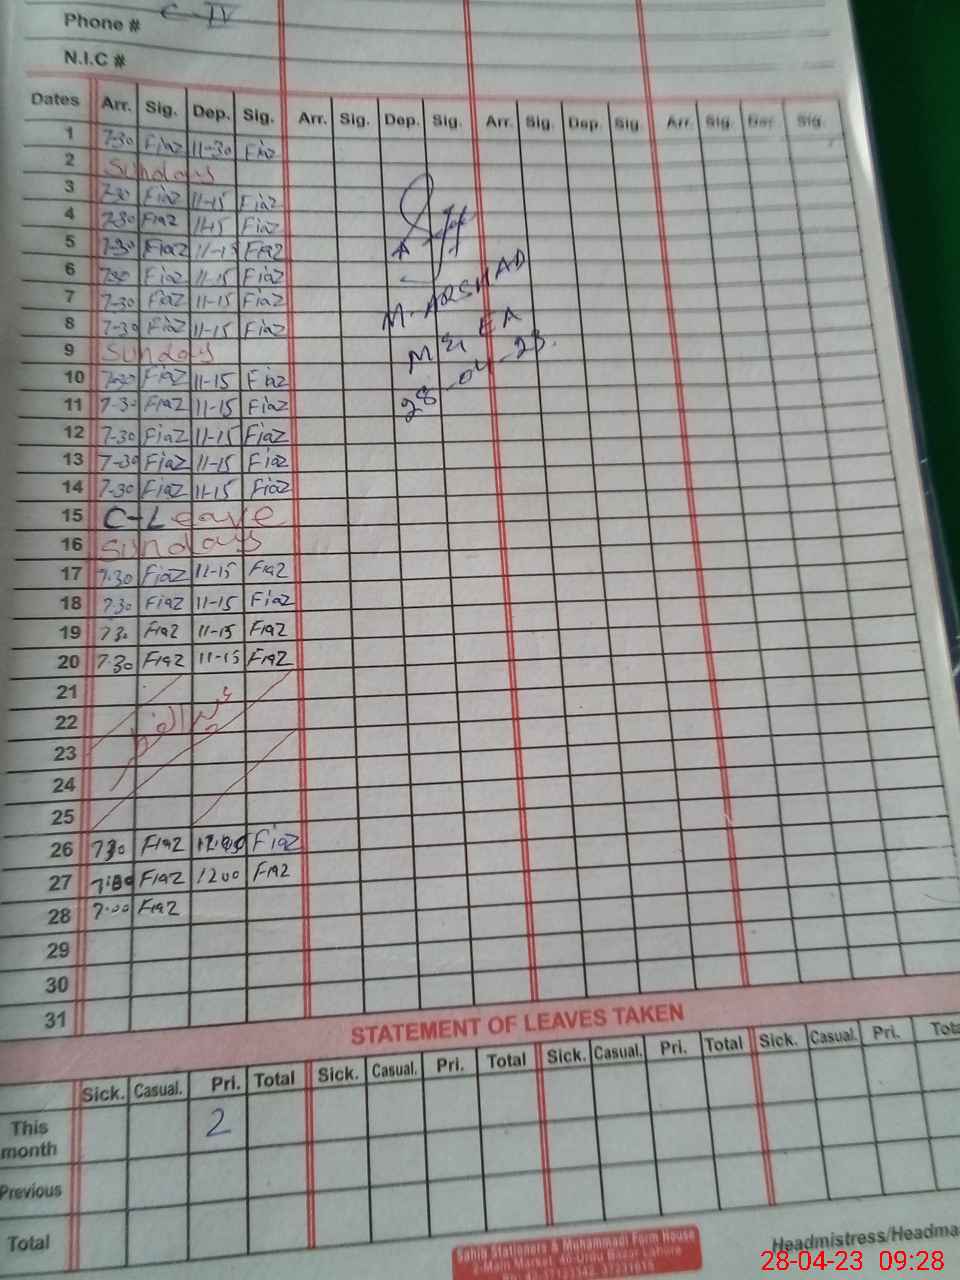 Phone # C-IV
N.I.C #
Dates Arr. Sig. Dep. Sig. Arr. Sig. Dep. Sig. Arr. Sig. Dep. Sig Arr. Sig. Dep. Sig.
1 7-30 Fiaz 11-30 Fiaz
2 Sundays
3 7-30 Fiaz 11-15 Fiaz
4 7-30 Fiaz 11-15 Fiaz
5 7-30 Fiaz 11-15 Fiaz
6 7-30 Fiaz 11-15 Fiaz
7 7-30 Fiaz 11-15 Fiaz
8 7-30 Fiaz 11-15 Fiaz
M. ARSHAD
9 Sundays
MEA
10 7-30 Fiaz 11-15 Fiaz
28-04-23.
11 7-30 Fiaz 11-15 Fiaz
12 7-30 Fiaz 11-15 Fiaz
13 7-30 Fiaz 11-15 Fiaz
14 7-30 Fiaz 11-15 Fiaz
15 C-Leave
16 Sundays
17 7.30 Fiaz 11-15 Fiaz
18 7.30 Fiaz 11-15 Fiaz
19 7 3. Fiaz 11-15 Fiaz
20 7.30 Fiaz 11-15 Fiaz
21
22
23
24
25
26 730 Fiaz Fiaz
27 Fiaz 1200 Fiaz
28 7.00 Fiaz
29
30
31
STATEMENT OF LEAVES TAKEN
Sick. Casual. Pri. Total Sick. Casual. Pri. Total Sick. Casual. Pri. Total Sick. Casual. Pri. Tota
This month 2
Previous
Total
Headmistress/Headma
Sahib Stationers & Muhammadi Form House
28-04-23 09:28